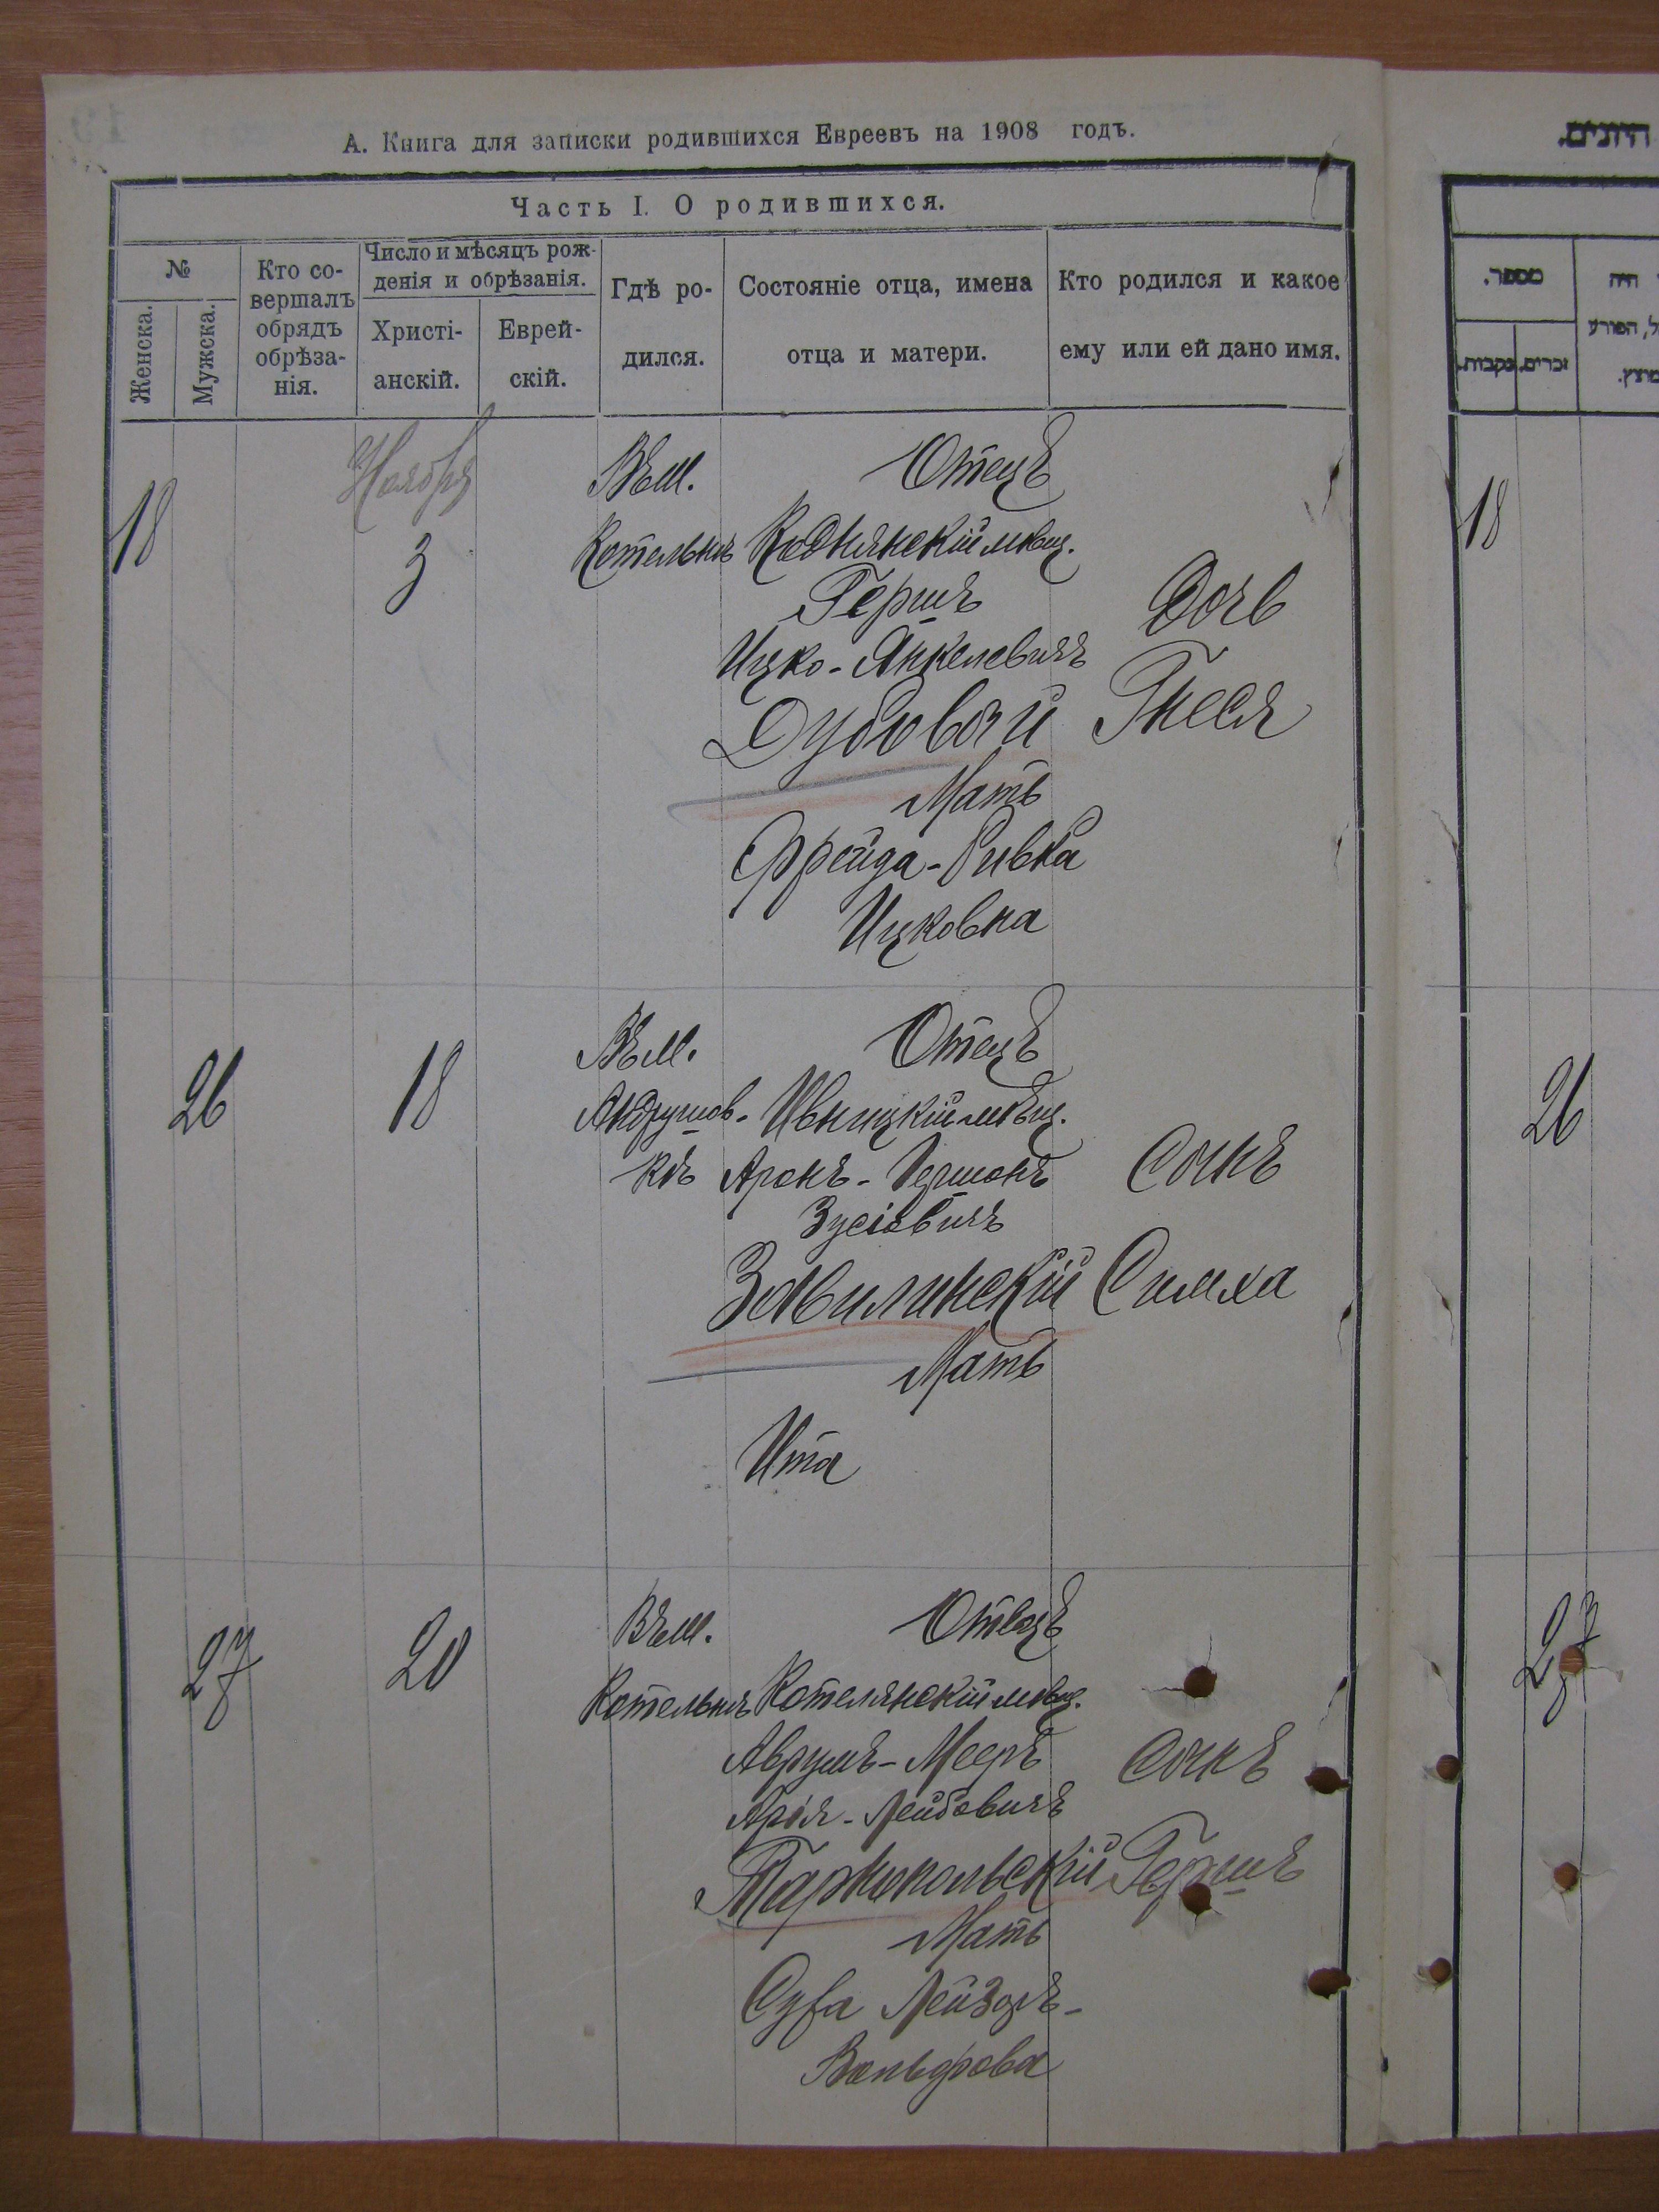 А. Книга для записки родившихся Евреевъ на 1908 годъ.
Часть I. О родившихся.
№
Женска.
Мужска.
Кто со-
вершалъ
обрядъ
обрѣза-
нія.
Число и мѣсяцъ рож-
денія и обрѣзанія.
Христі-
анскій.
Еврей-
скій.
Гдѣ ро-
дился.
Состояніе отца, имена
отца и матери.
Кто родился и какое
ему или ей дано имя.
Ноября
18
3
Въ м.
Котельнѣ
Отецъ
Коднянскій мѣщ.
Гершъ
Ицко-Янкелевичъ
Дубовой
Мать
Фрейда-Ривка
Ицковна
Дочь
Гнеся
26
18
Въ м.
Андрушов-
кѣ
Отецъ
Ивницкій мѣщ.
Аронъ-Гершонъ
Зусіовичъ
Завилинскій
Мать
Ита
Сынъ
Симха
27
20
Въ м.
Котельнѣ
Отецъ
Котелянскій мѣщ.
Аврумъ-Мееръ
Арія-Лейбовичъ
Мать
Лейзоръ-
Вольфова
Сынъ
Гершъ
היונים.
מספר.
נקבות.
זכרים.
היה
ל, הפורע
מוצץ.
18
26
27